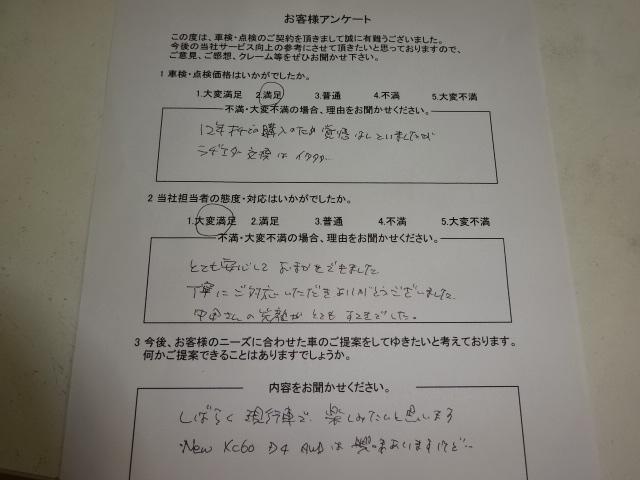 お客様アンケート
この度は、車検・点検のご契約を頂きまして誠に有難うございました。
今後の当社サービス向上の参考にさせて頂きたいと思っておりますので、
ご意見、ご感想、クレーム等をぜひお聞かせ下さい。
1 車検・点検価格はいかがでしたか。
1.大変満足 2.満足 3.普通 4.不満 5.大変不満
不満・大変不満の場合、理由をお聞かせください。
12年 購入のため 覚悟はしていましたが
ラヂエター交換は イタタタ…
2 当社担当者の態度・対応はいかがでしたか。
1.大変満足 2.満足 3.普通 4.不満 5.大変不満
不満・大変不満の場合、理由をお聞かせください。
とても安心して おまかせできました
丁寧にご対応いただきありがとうございました。
さんの笑顔がとても すてきでした。
3 今後、お客様のニーズに合わせた車のご提案をしてゆきたいと考えております。
何かご提案できることはありますでしょうか。
内容をお聞かせください。
しばらく 現行車で 楽しみたいと思います
New XC60 D4 AWDは 興味ありますけど…